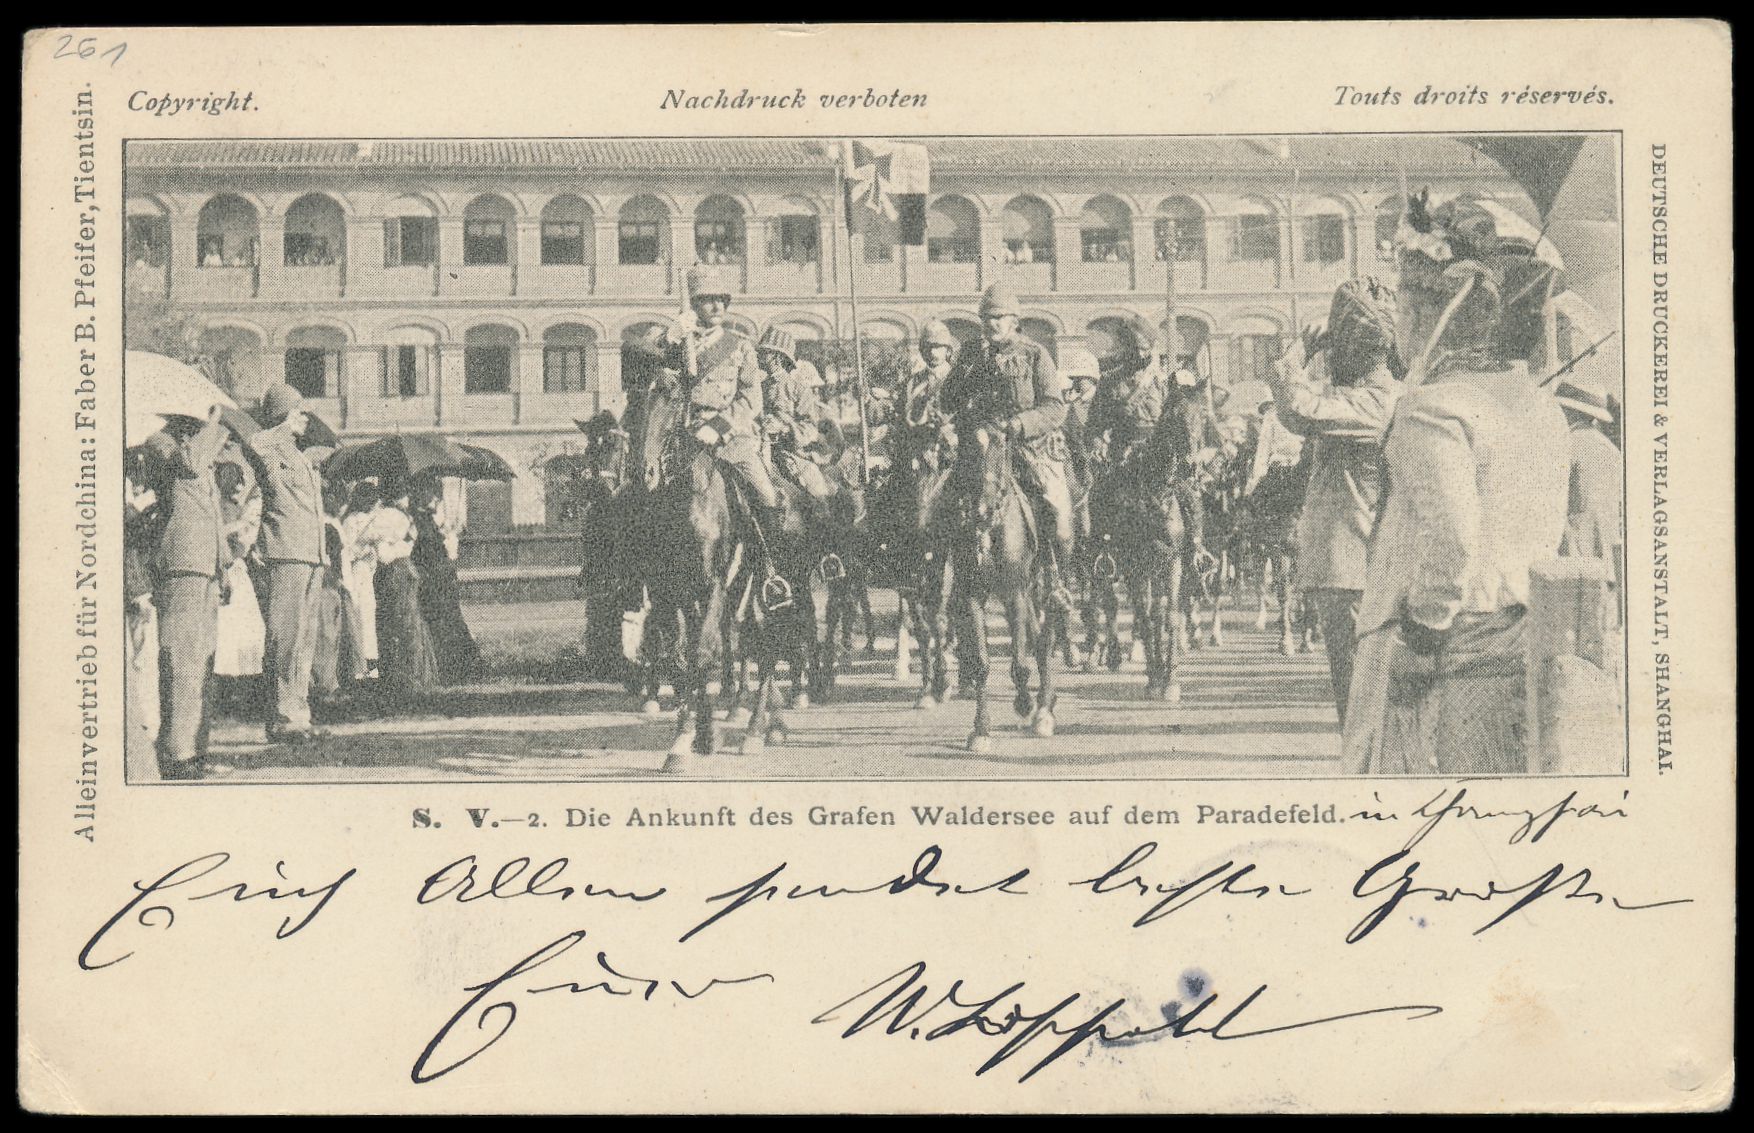 261
Copyright.
Nachdruck verboten
Touts droits réservés.
Alleinvertrieb für Nordchina: Faber B. Pfeifer, Tientsin.
DEUTSCHE DRUCKEREI & VERLAGSANSTALT, SHANGHAI.
S. V.—2. Die Ankunft des Grafen Waldersee auf dem Paradefeld. in
Euch Allen sendet beste Grüsse
Euer W.